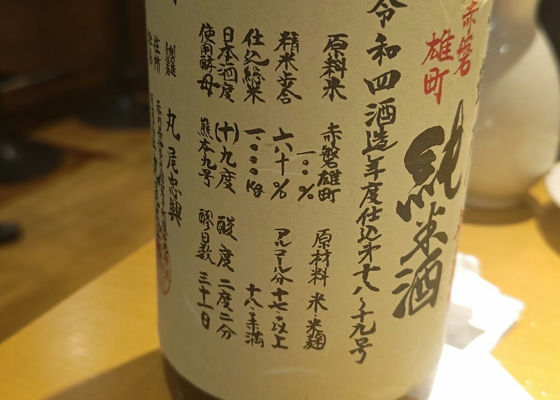 赤磐
雄町
純米酒
令和四酒造年度仕込第十八、十九号
原料米 赤磐雄町 一〇〇% 原材料 米 米麹
精米歩合 六十% アルコール分 十七・以上
仕込総米 一〇〇〇kg 十八・未満
日本酒度 (十)九度 酸度 二度二分
使用酵母 熊本九号 醪日数 三十一日
丸尾忠興
住所